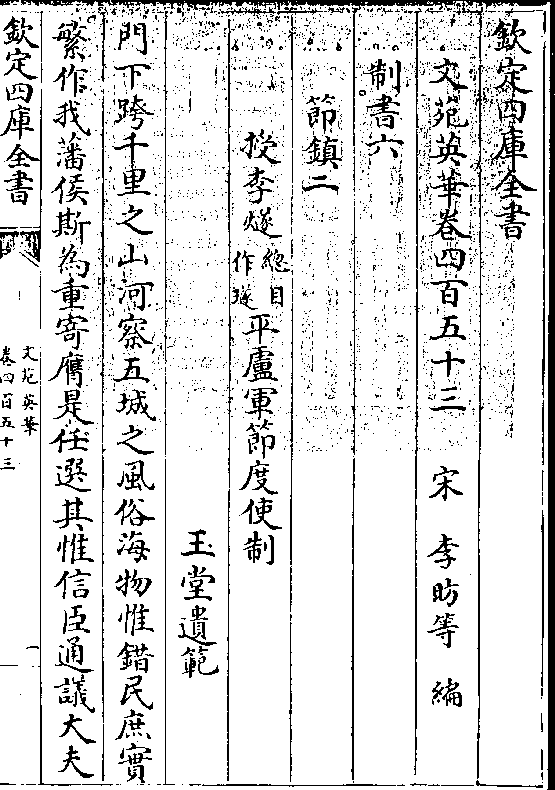 欽定四庫全書
文苑英華卷四百五十三　宋　李昉等　編
制書六
節鎮二
授李燧總目作璲平盧軍節度使制
玉堂遺範
門下跨千里之山河察五城之風俗海物惟錯民庶實
繁作我藩侯斯為重寄膺是任選其惟信臣通議大夫
欽定四庫全書
文苑英華
卷四百五十三
一